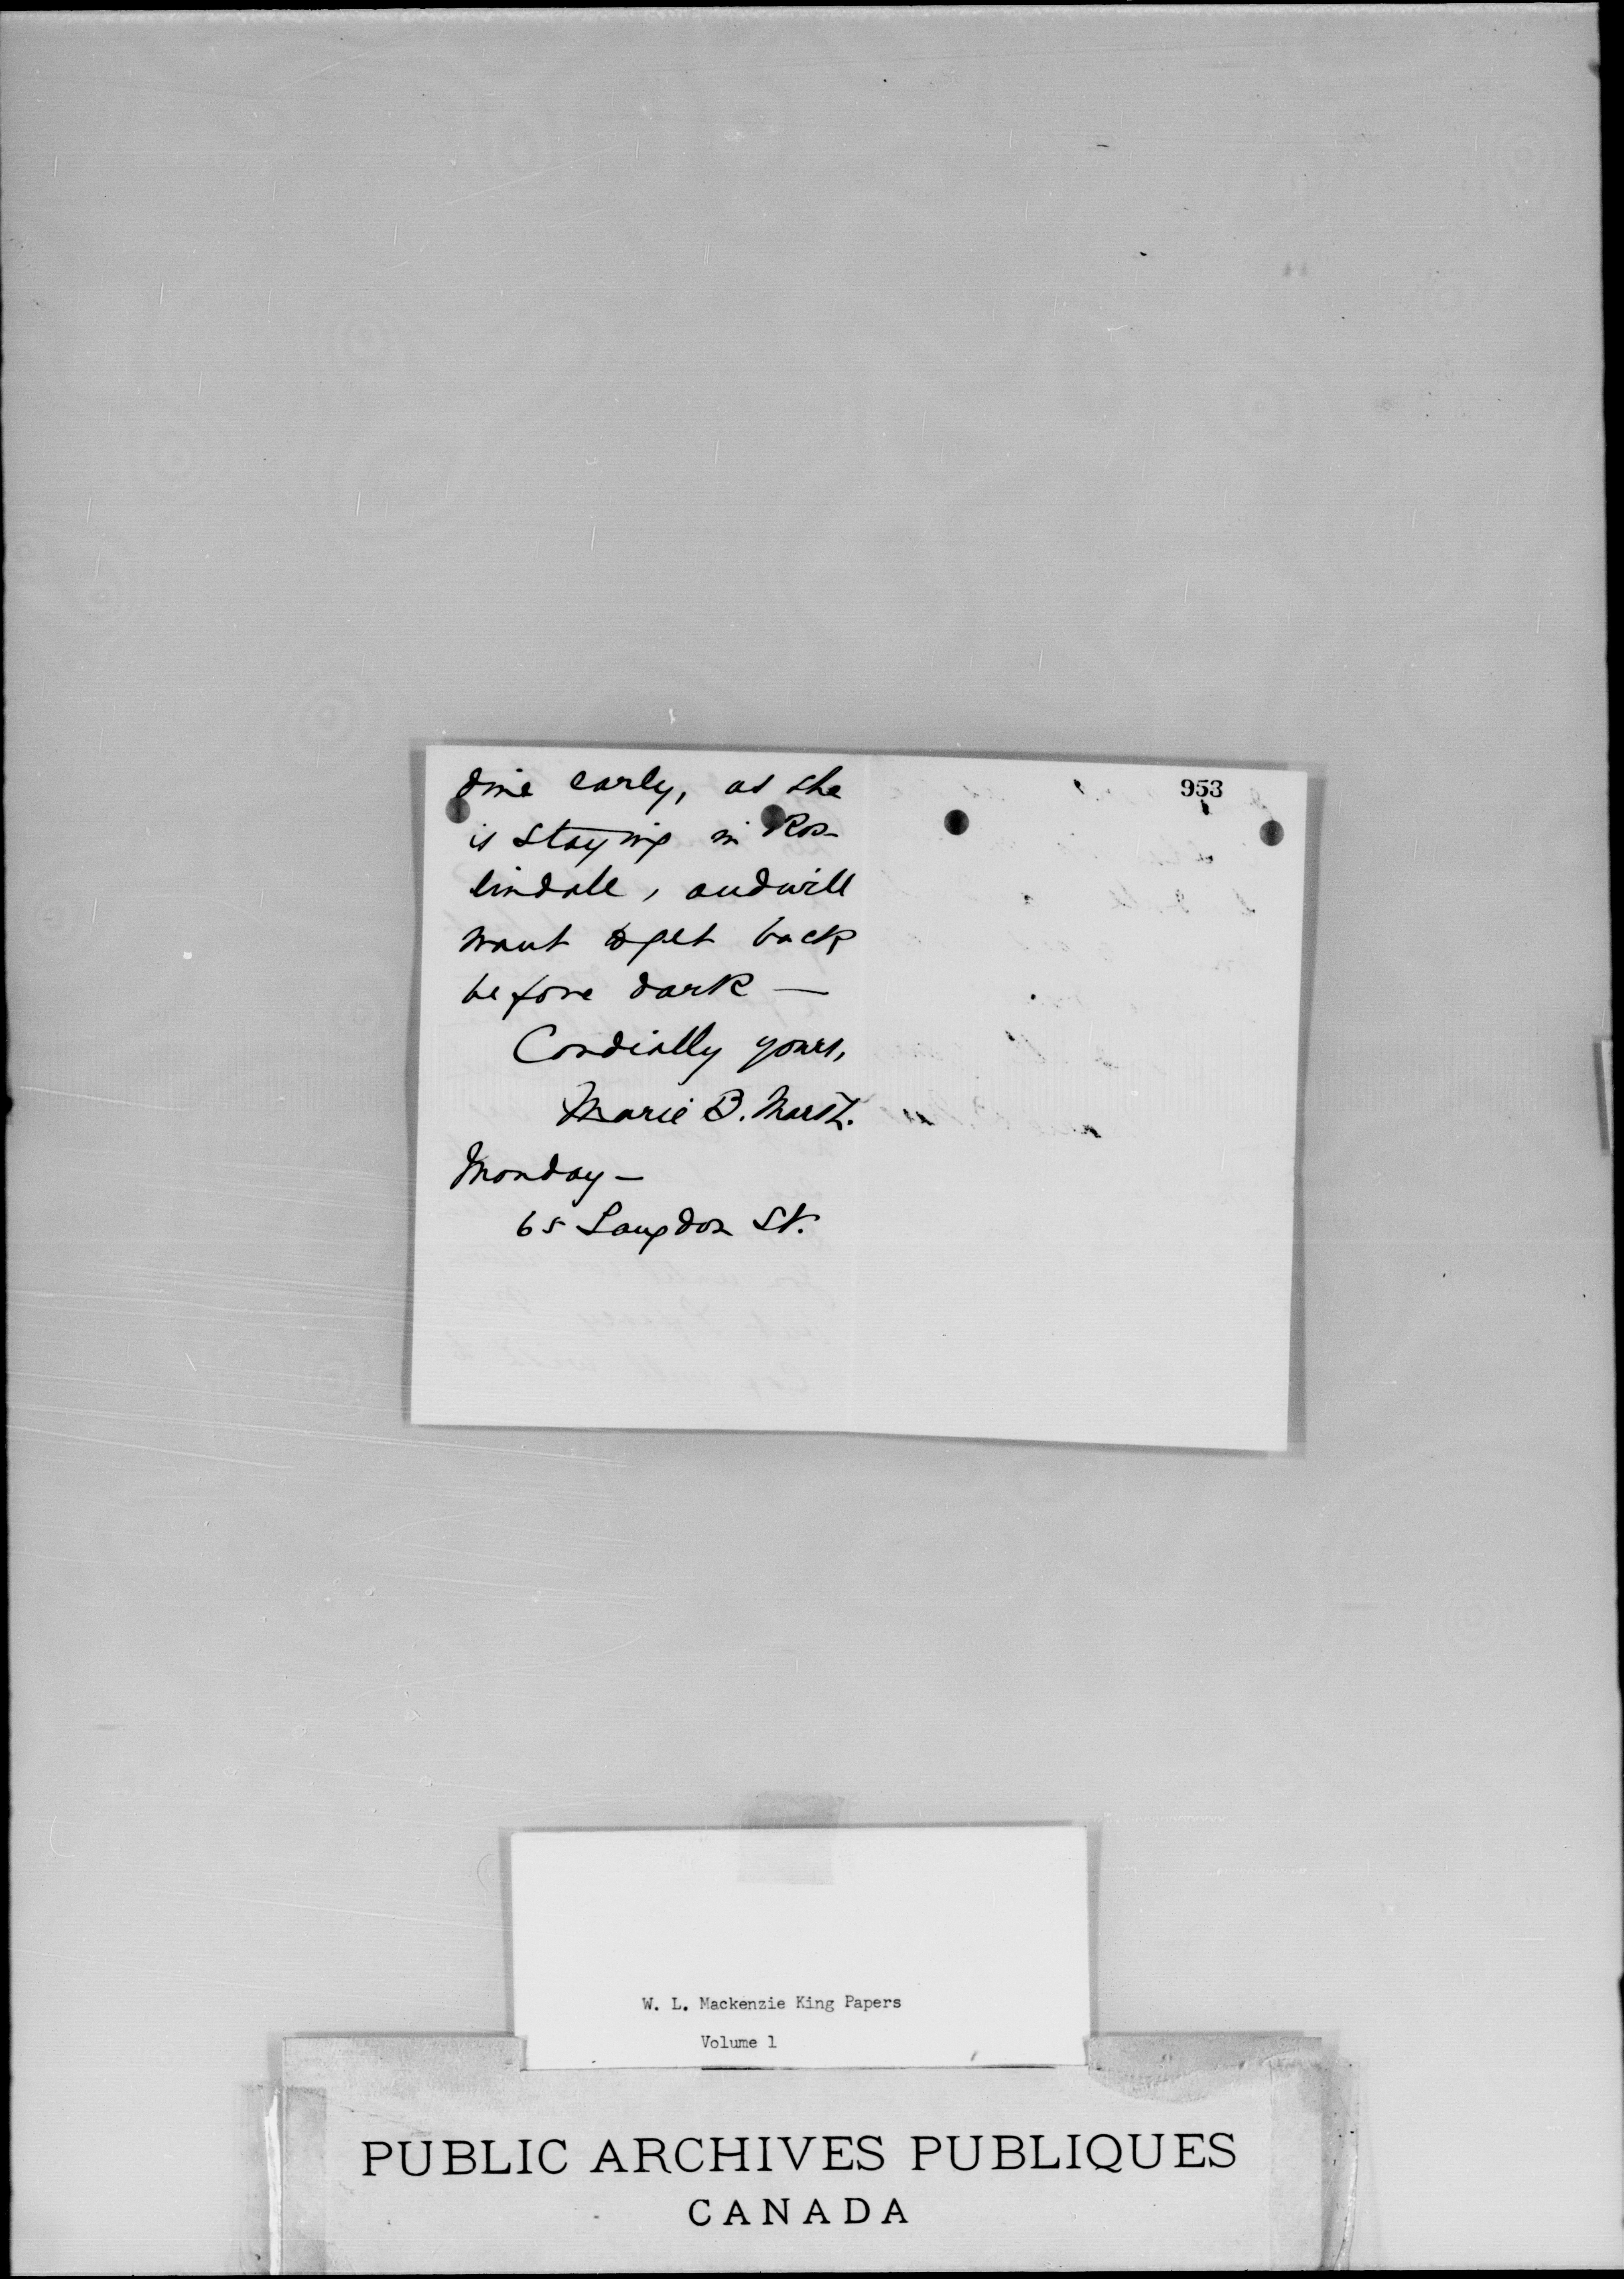 dine early, as she
is staying in Ros-
lindale, and will
want to get back
before dark —
Cordially yours,
Marie B. Marsh.
Monday —
65 Langdon St.
953
W. L. Mackenzie King Papers
Volume 1
PUBLIC ARCHIVES PUBLIQUES
CANADA